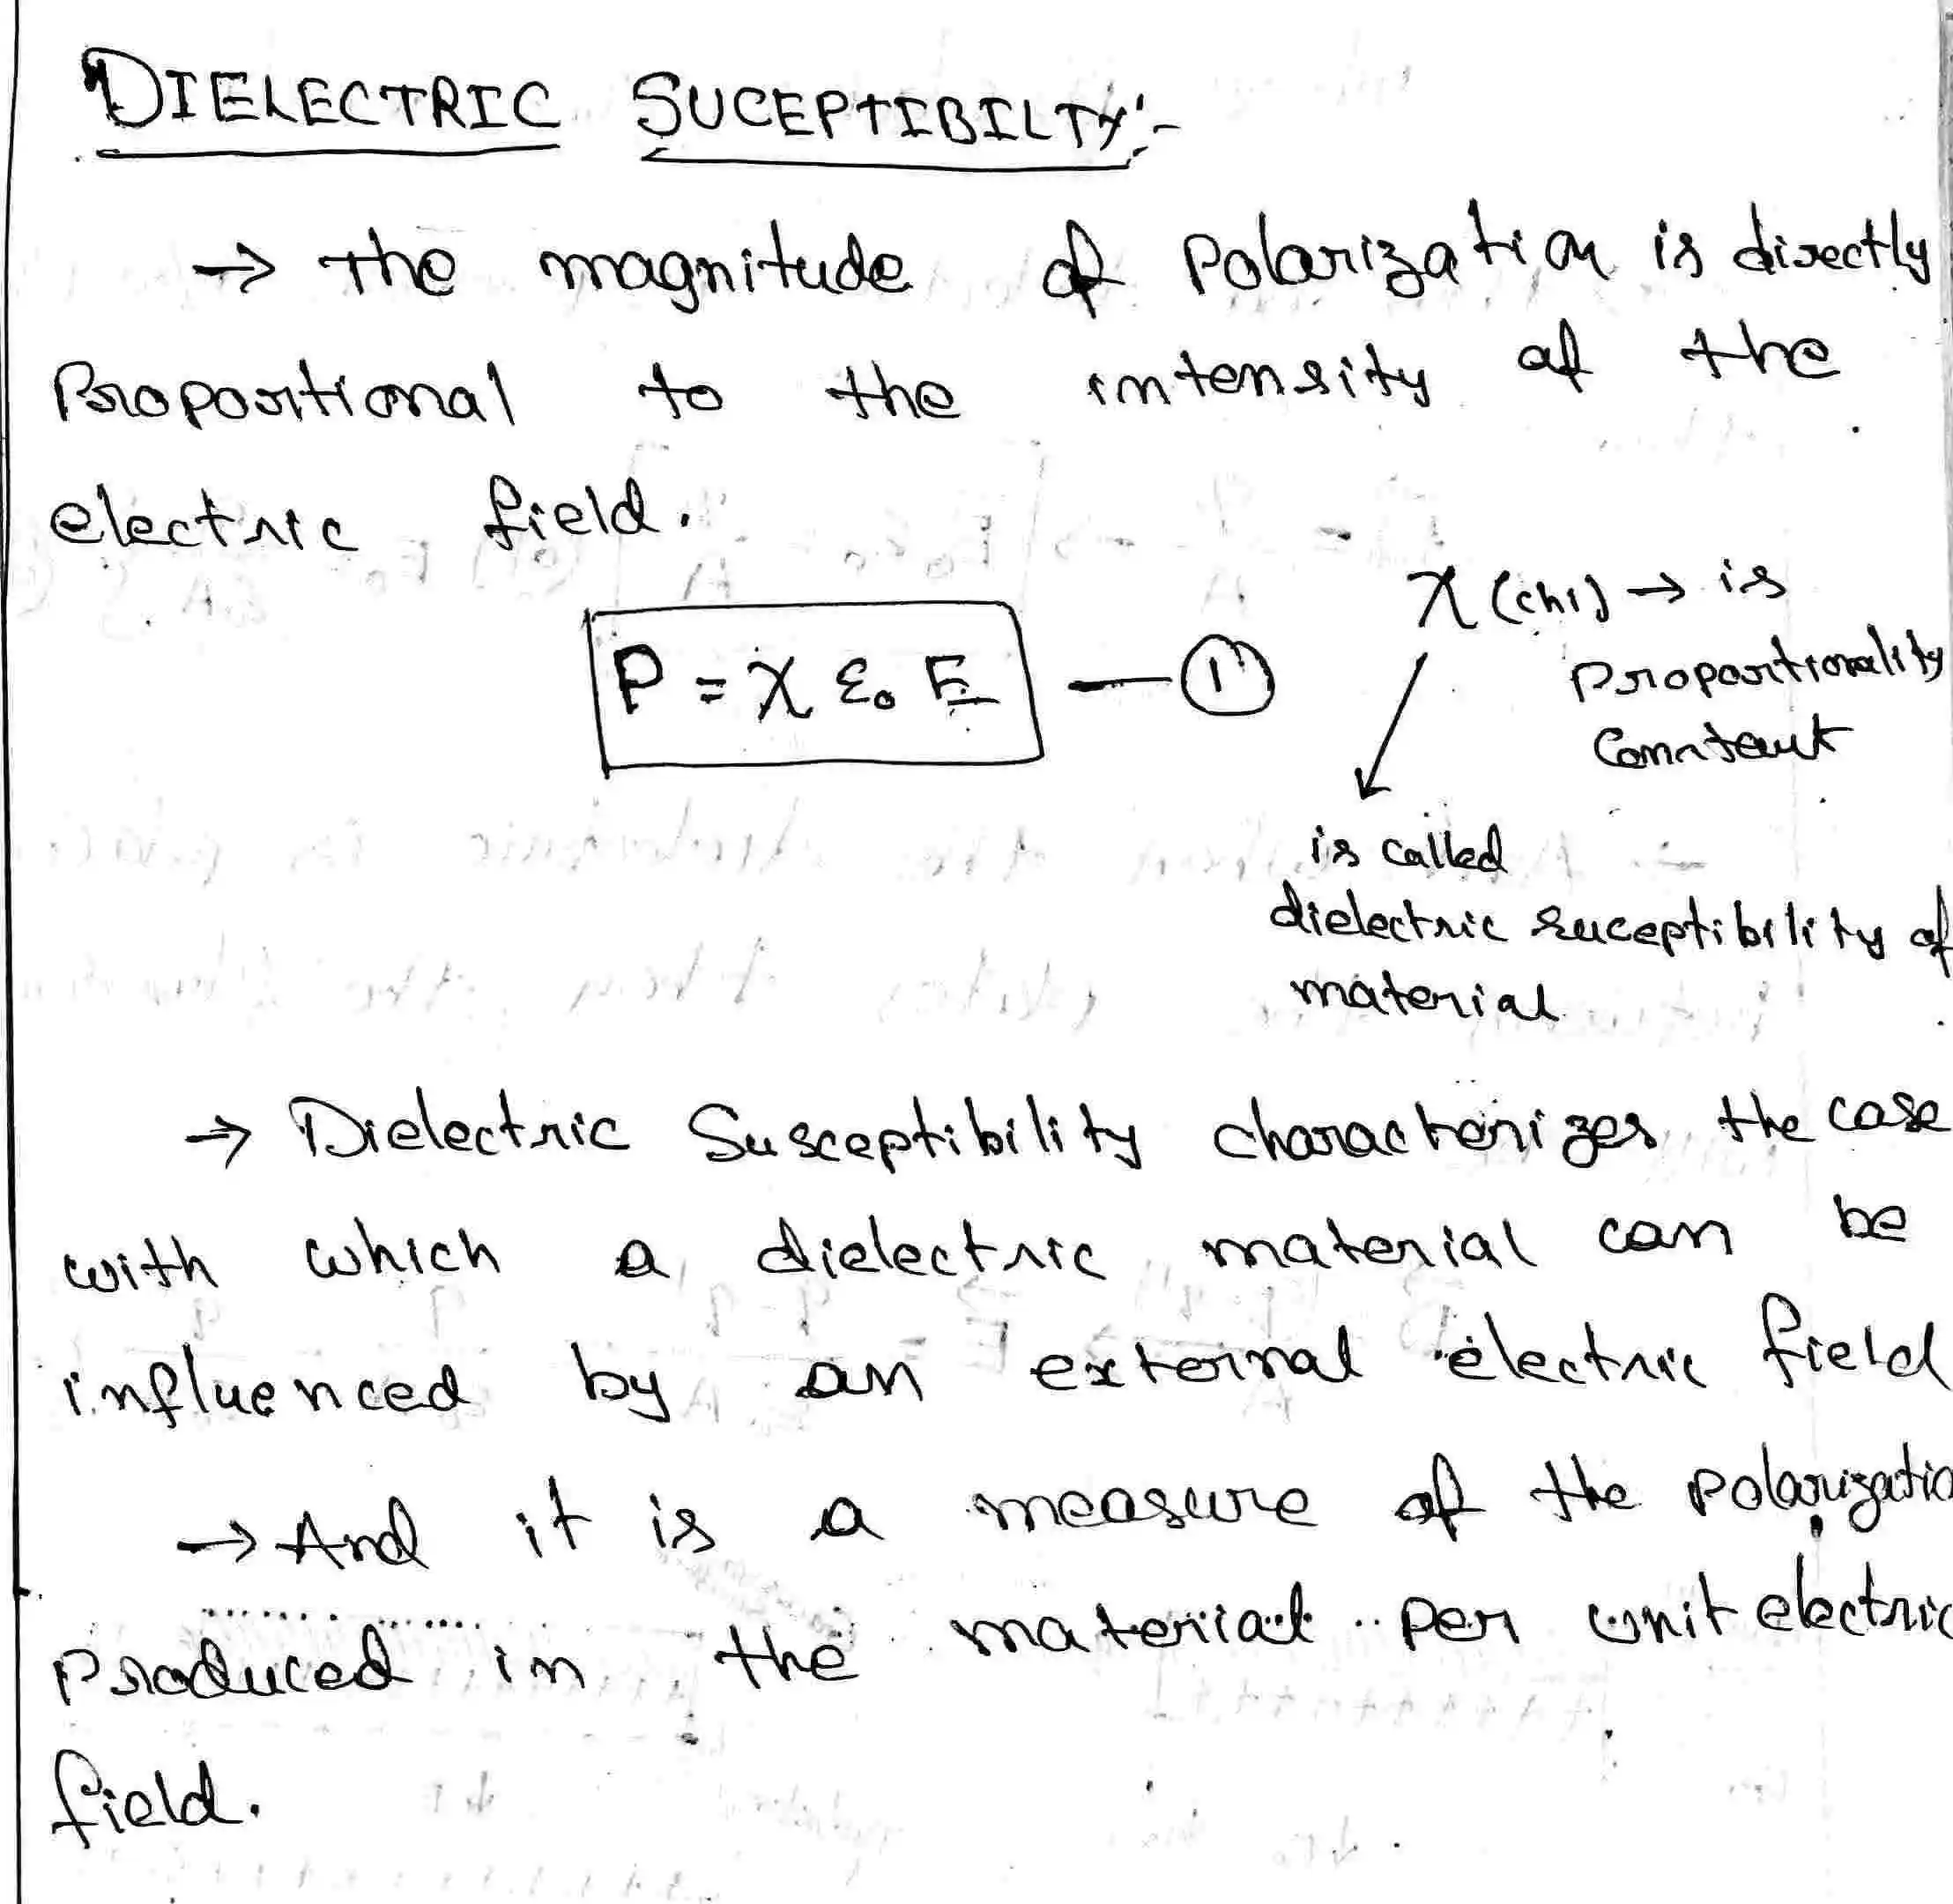 DIELECTRIC SUCEPTIBILTY:-
→ The magnitude of Polarization is directly
Proportional to the intensity of the
electric field.
P = χ ε₀ E — ①
χ (chi) → is
Proportionality
Constant
is called
dielectric suceptibility of
material
→ Dielectric Susceptibility characterizes the case
with which a dielectric material can be
influenced by an external electric field
→ And it is a measure of the polarizatio
Produced in the material per unit electric
field.